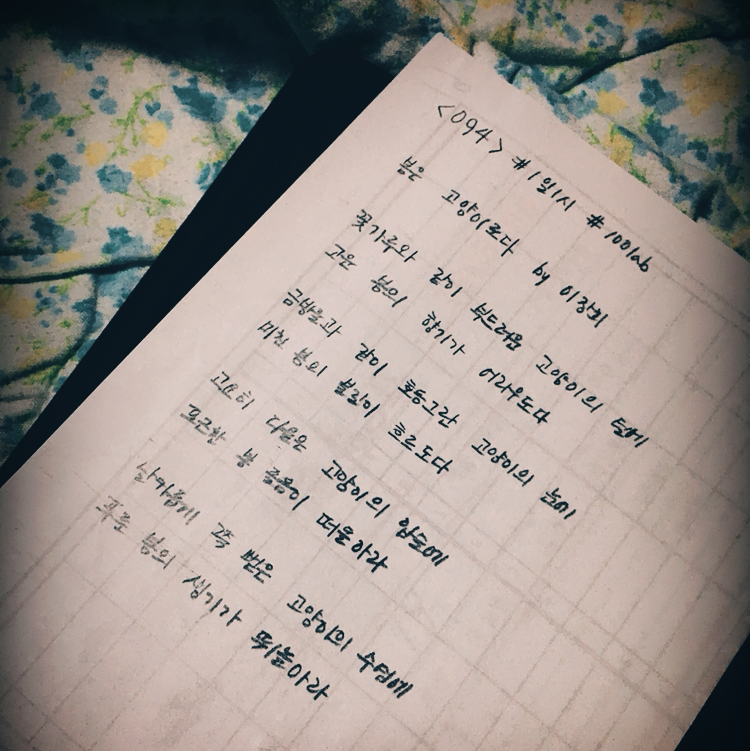 <094> #1일1시 #100lab
봄은 고양이로다 by 이장희
꽃가루와 같이 부드러운 고양이의 털에
고운 봄의 향기가 어리우도다
금방울과 같이 호동그란 고양이의 눈에
미친 봄의 불길이 흐르도다
고요히 다물은 고양이의 입술에
포근한 봄 졸음이 떠돌아라
날카롭게 쭉 뻗은 고양이의 수염에
푸른 봄의 생기가 뛰놀아라